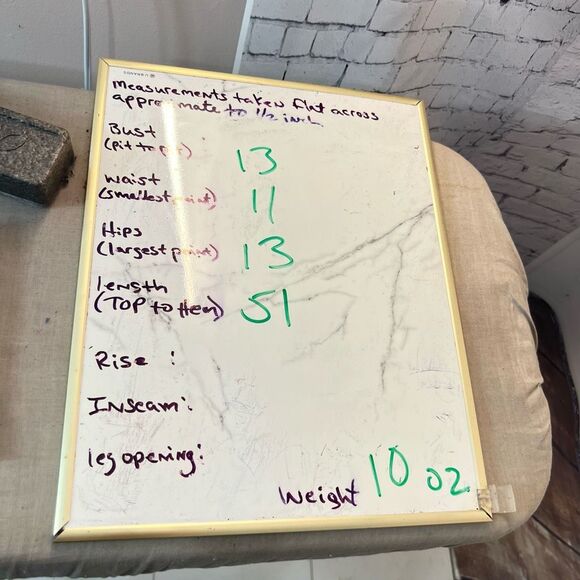 Measurements taken flat across
approximate to 1/2 inch
Bust
(pit to pit) 13
waist
(smallest point) 11
Hips
(largest point) 13
length
(TOP to Hem) 51
Rise :
Inseam:
leg opening:
Weight 10 oz